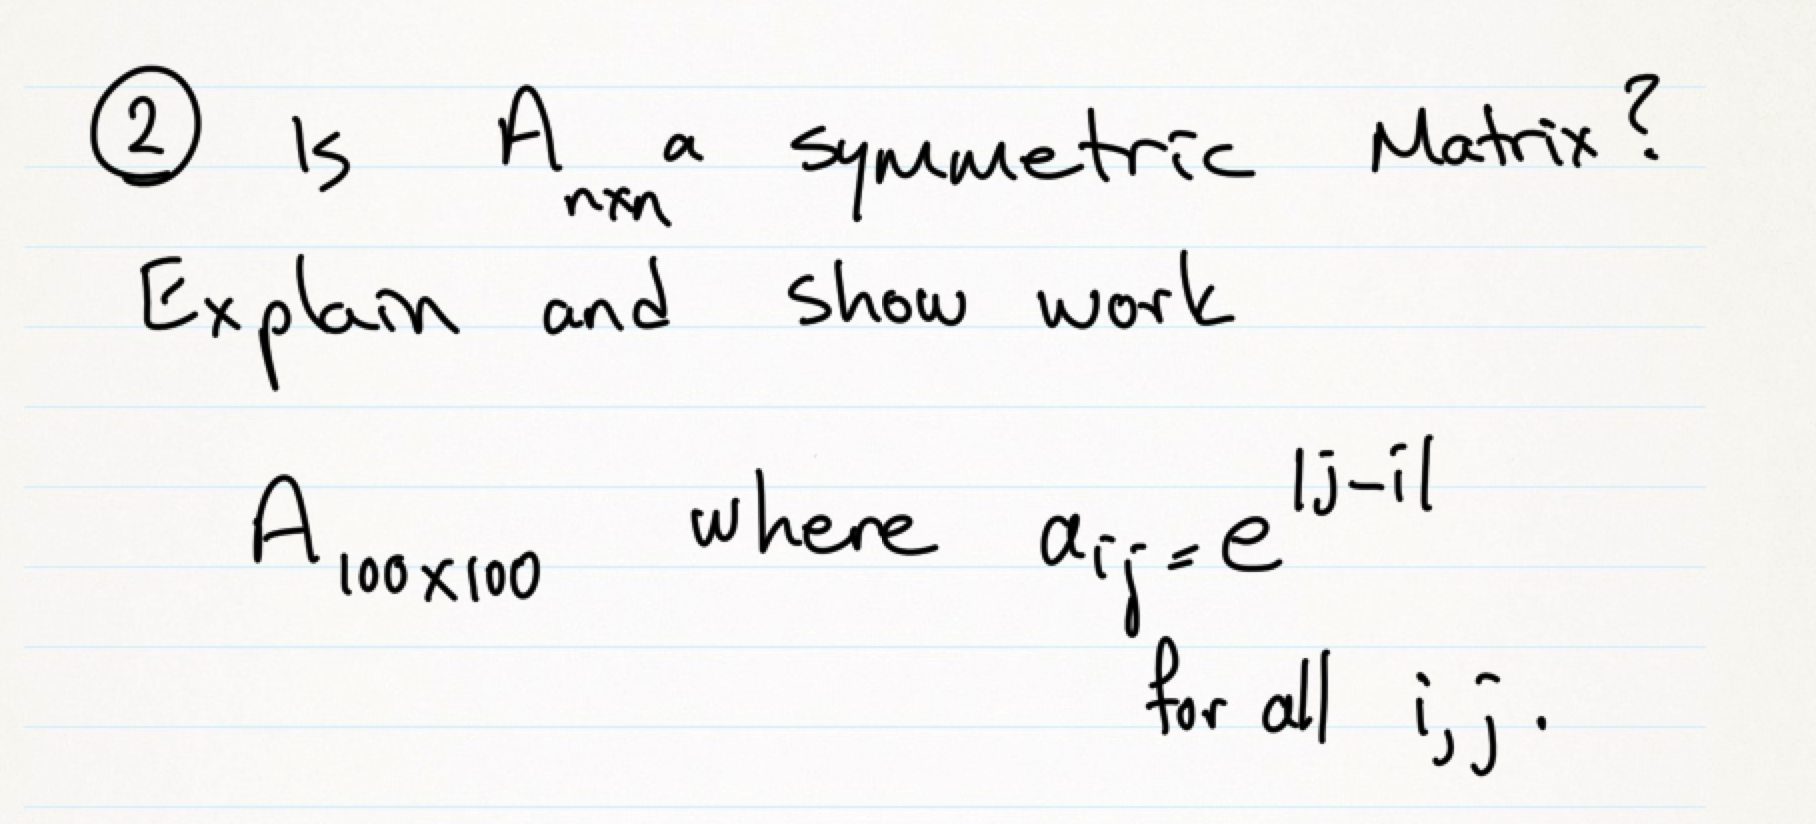 ② Is Aₙₓₙ a symmetric Matrix?
Explain and show work
A₁₀₀ₓ₁₀₀ where aᵢⱼ = e^|j-i|
for all i,j.